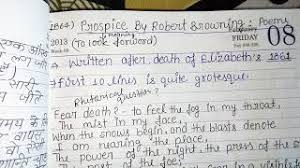 (1864) Prospice By Robert Browning: Poems
meaning
2013 (To look forward) FRIDAY 08
→ Written after death of Elizabeth's 1861
→ First 10 lines is quite grotesque.
question?
Fear death? - to feel the fog in my throat,
The mist in my face,
When the snows begin, and the blasts denote
I am nearing the place,
The power of the night, the press of the
post of the foe;
सारी
जीते